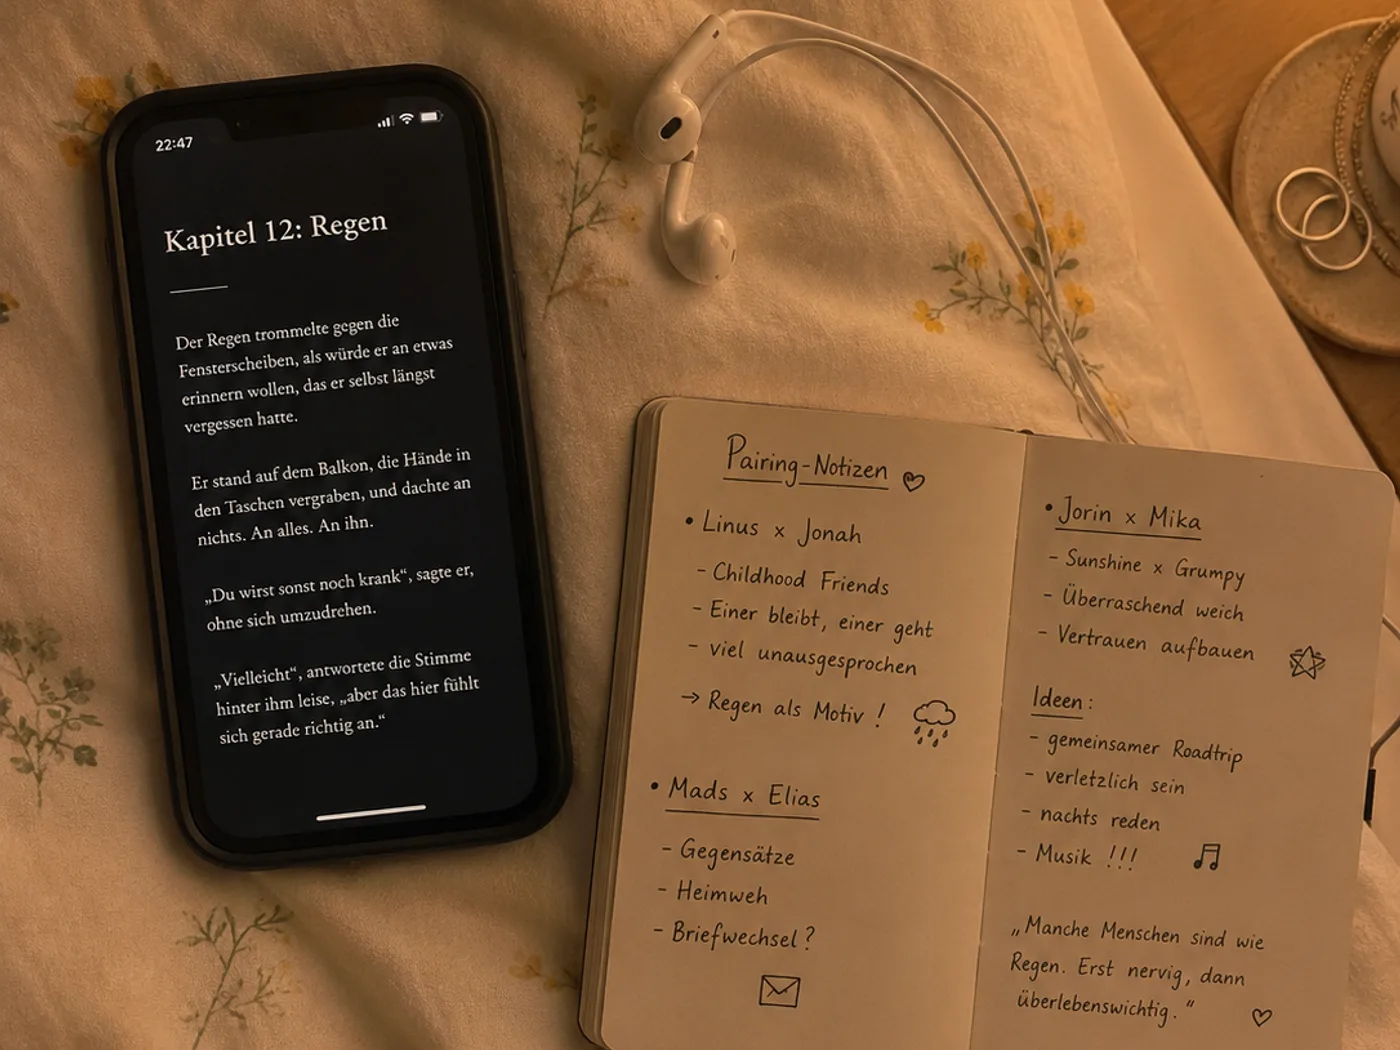 22:47
Kapitel 12: Regen
Der Regen trommelte gegen die
Fensterscheiben, als würde er an etwas
erinnern wollen, das er selbst längst
vergessen hatte.
Er stand auf dem Balkon, die Hände in
den Taschen vergraben, und dachte an
nichts. An alles. An ihn.
„Du wirst sonst noch krank“, sagte er,
ohne sich umzudrehen.
„Vielleicht“, antwortete die Stimme
hinter ihm leise, „aber das hier fühlt
sich gerade richtig an.“
Pairing-Notizen
• Linus x Jonah
- Childhood Friends
- Einer bleibt, einer geht
- viel unausgesprochen
→ Regen als Motiv !
• Mads x Elias
- Gegensätze
- Heimweh
- Briefwechsel?
• Jorin x Mika
- Sunshine x Grumpy
- Überraschend weich
- Vertrauen aufbauen
Ideen:
- gemeinsamer Roadtrip
- verletzlich sein
- nachts reden
- Musik !!!
„Manche Menschen sind wie
Regen. Erst nervig, dann
überlebenswichtig.“